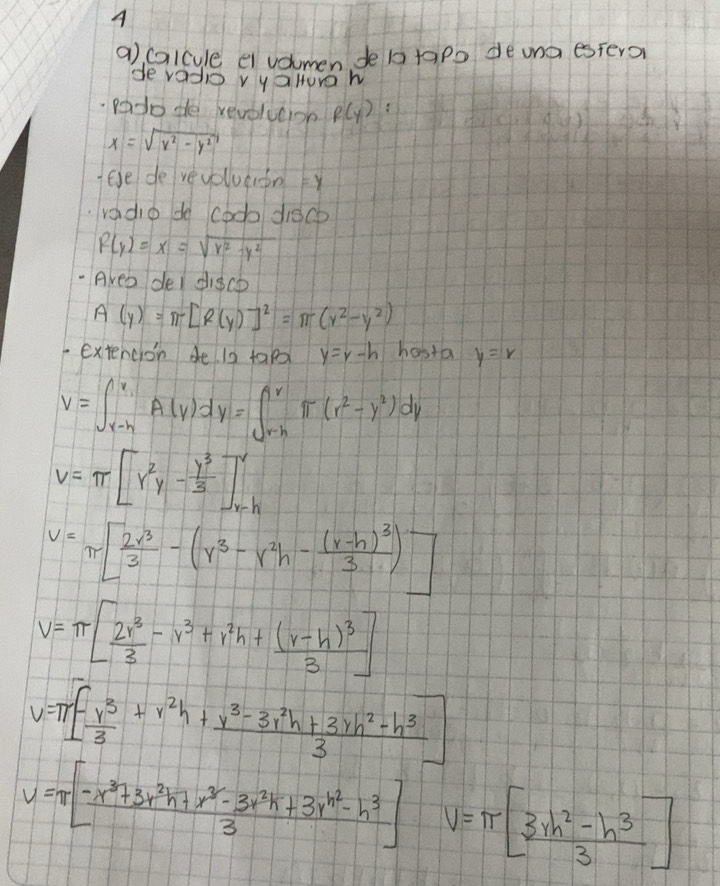 4
a) calcule el volumen de la tapa de una esfera
de radio r y altura h
· Radio de revolucion R(y):
x = √(r² - y²)
· Eje de revolución = y
· radio de cada disco
R(y) = x = √(r² - y²)
· Area del disco
A(y) = π[R(y)]² = π(r² - y²)
· extención de la tapa y=r-h hasta y=r
V = ∫_{r-h}^{r} A(y)dy = ∫_{r-h}^{r} π(r² - y²)dy
V = π[r²y - y³/3]_{r-h}^{r}
V = π[2r³/3 - (r³ - r²h - (r-h)³/3)]
V = π[2r³/3 - r³ + r²h + (r-h)³/3]
V = π[-r³/3 + r²h + (r³ - 3r²h + 3rh² - h³)/3]
V = π[(-r³ + 3r²h + r³ - 3r²h + 3rh² - h³)/3] V = π[(3rh² - h³)/3]